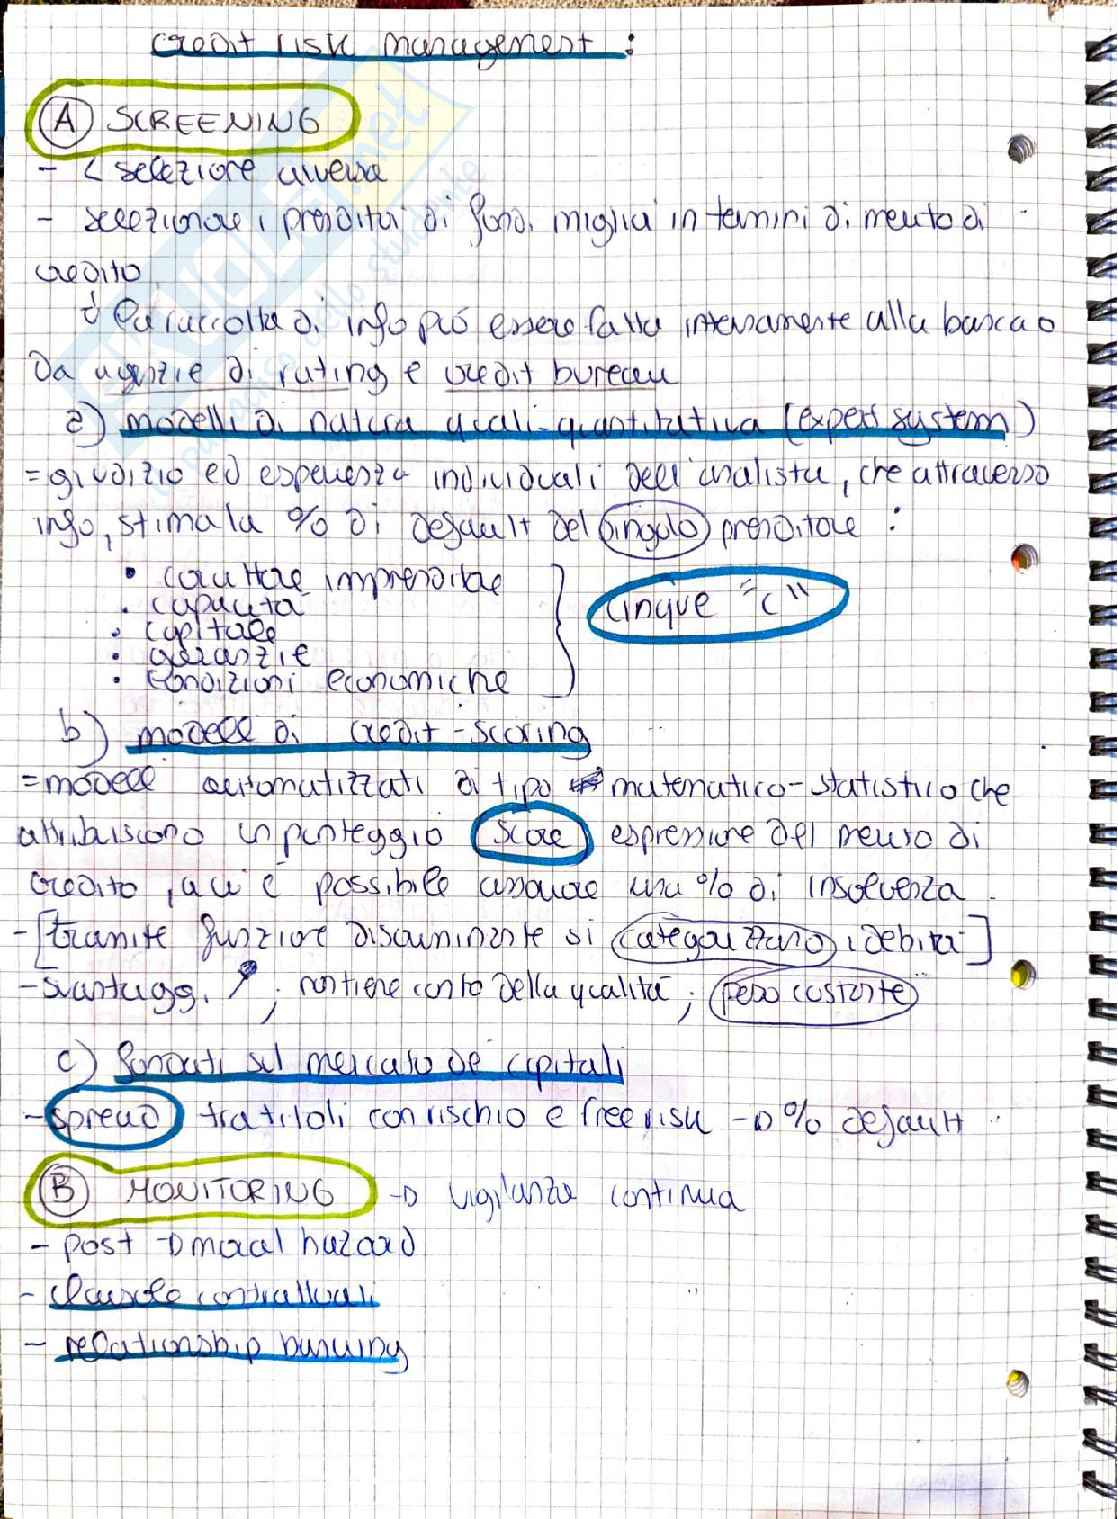 credit risk management :
A SCREENING
- < selezione avversa
- selezionare i prenditori di fondi migliori in termini di merito di
credito.
↓ La raccolta di info può essere fatta internamente alla banca o
da agenzie di rating e credit bureau
a) modelli di natura quali-quantitativa (expert system)
= giudizio ed esperienza individuali dell'analista, che attraverso
info, stima la % di default del singolo prenditore :
• carattere imprenditore
• capacità
• capitale
• garanzie
• condizioni economiche
cinque "c"
b) modelli di credit-scoring
= modelli automatizzati di tipo matematico-statistico che
attribuiscono un punteggio score espressione del merito di
credito, a cui è possibile associare una % di insolvenza.
- [tramite funzione discriminante si categorizzano i debitori]
- svantaggi. ; non tiene conto della qualità ; peso costante
c) fondati sul mercato dei capitali
- spread tra titoli con rischio e free risk → % default
B MONITORING → vigilanza continua
- post → moral hazard
- clausole contrattuali
- relationship banking